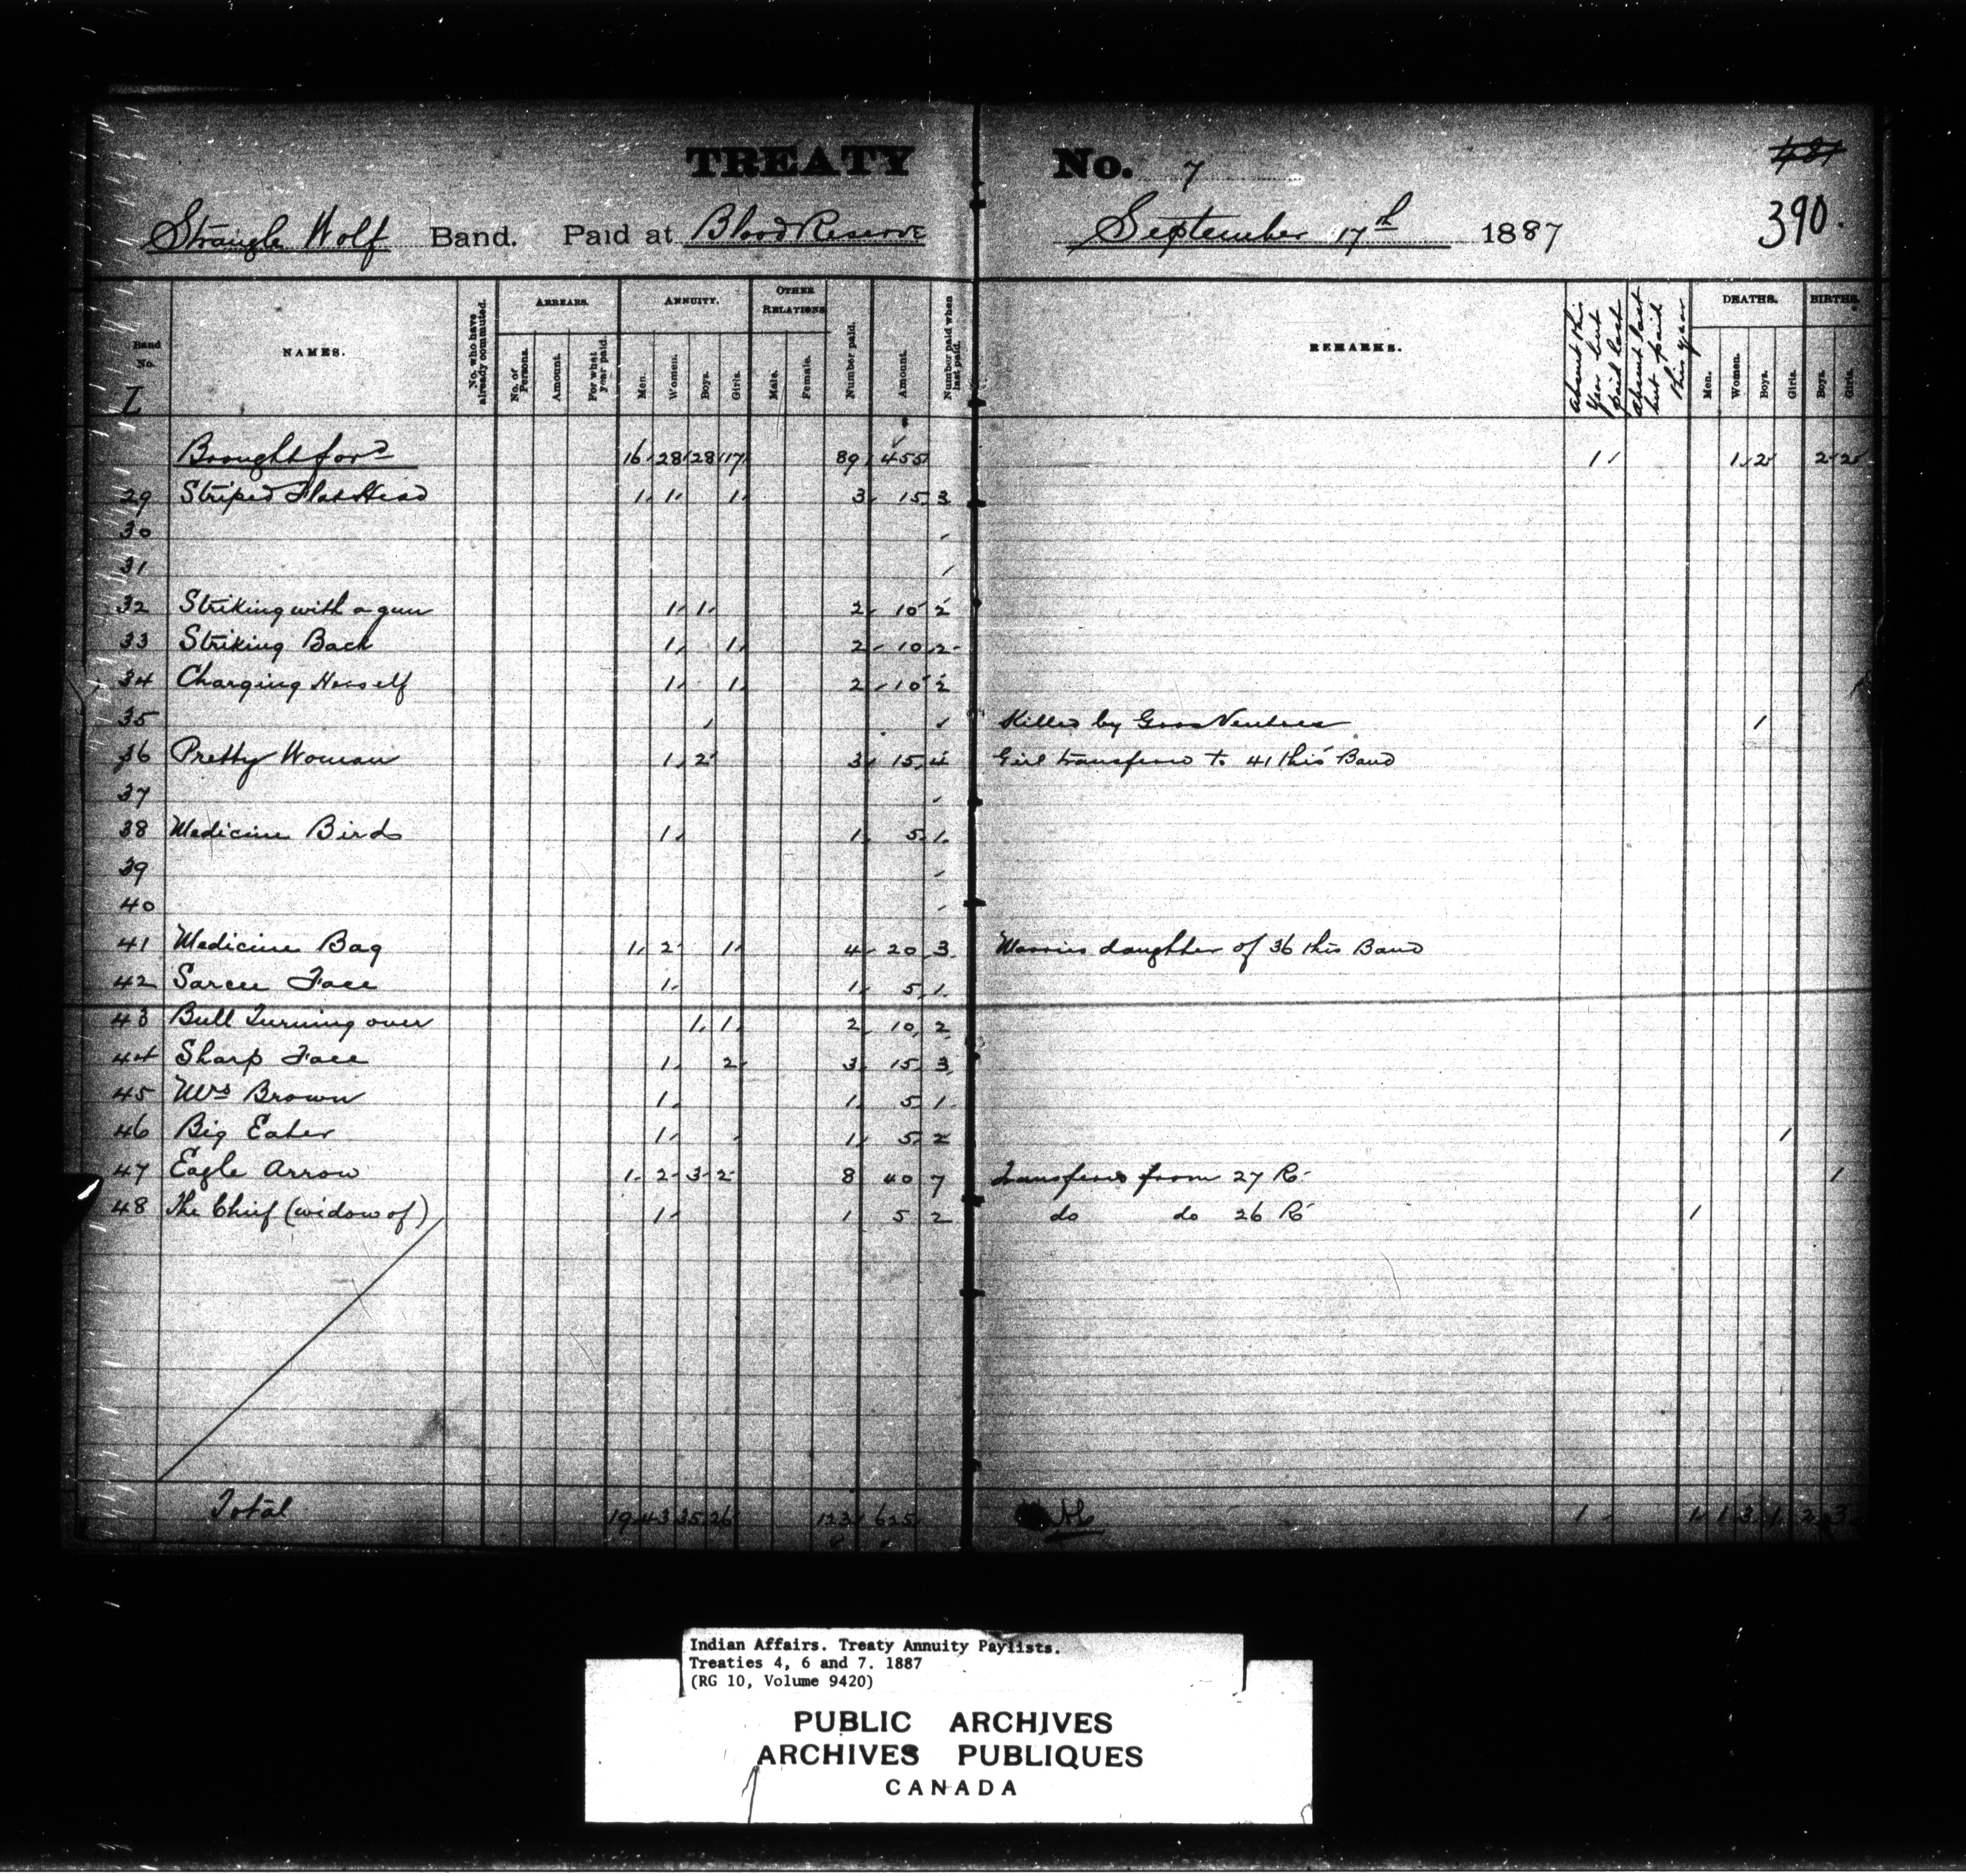 TREATY No. 7
481
390.
Strangle Wolf Band. Paid at Blood Reserve September 17th 1887
Band No. NAMES. No. who have already commuted. ARREARS. No. of Persons. Amount. For what year paid. ANNUITY. Men. Women. Boys. Girls. OTHER RELATIONS Male. Female. Number paid. Amount. Number paid when last paid. REMARKS. Absent this year but paid last Absent last but paid this year DEATHS. Men. Women. Boys. Girls. BIRTHS. Boys. Girls.
Z
Brought ford 16 28 28 17 89 455 1 1 2 2 2
29 Striped Flat Head 1 1 1 3 15 3
30
31
32 Striking with a gun 1 1 2 10 2
33 Striking Back 1 1 2 10 2
34 Charging Herself 1 1 2 10 2
35 Killed by Gros Ventres 1
36 Pretty Woman 1 2 3 15 4 Girl transferd to 41 this Band
37
38 Medicine Bird 1 1 5 1
39
40
41 Medicine Bag 1 2 1 4 20 3 Married daughter of 36 this Band
42 Sarcee Face 1 1 5 1
43 Bull Turning over 1 1 2 10 2
44 Sharp Face 1 2 3 15 3
45 Mrs Brown 1 1 5 1
46 Big Eater 1 1 5 2 1
47 Eagle Arrow 1 2 3 2 8 40 7 Transferd from 27 R. 1
48 The Chief (widow of) 1 1 5 2 do do 26 R. 1
Total 19 43 35 26 123 625 1 1 1 3 1 2 3
Indian Affairs. Treaty Annuity Paylists.
Treaties 4, 6 and 7. 1887
(RG 10, Volume 9420)
PUBLIC ARCHIVES
ARCHIVES PUBLIQUES
CANADA